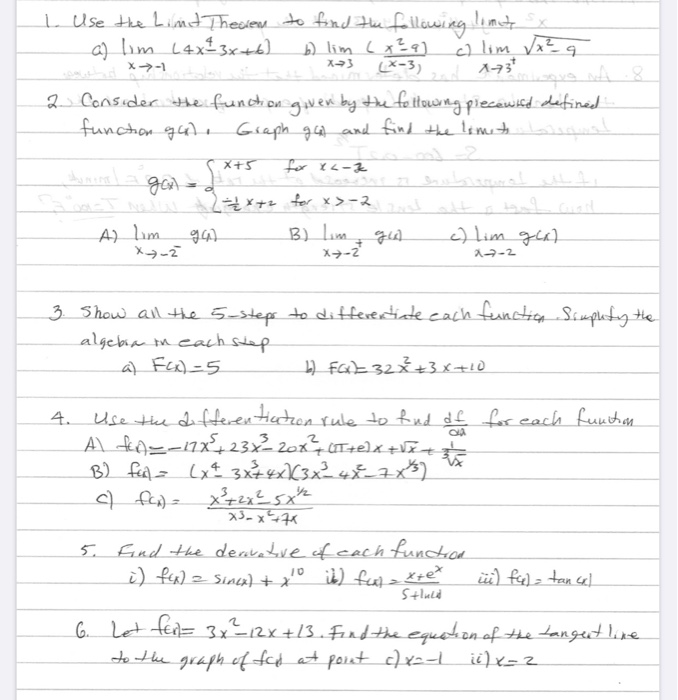 1. Use the Limit Theorem to find the following limits
a) lim x→-1 (4x⁴-3x+6) b) lim x→3 (x²-9)/(x-3) c) lim x→3⁺ √x²-9
2. Consider the function given by the following piecewised defined
function g(x). Graph g(x) and find the limits
g(x) = { x+5 for x<-2
-½x+2 for x>-2
A) lim x→-2⁻ g(x) B) lim x→-2⁺ g(x) c) lim x→-2 g(x)
3. Show all the 5-steps to differentiate each function. Simplify the
algebra in each step
a) F(x)=5 b) F(x)=32x²+3x+10
4. Use the differentiation rule to find df/dx for each function
A) f(x)=-17x⁵+23x³-20x²+(π+e)x+√x+1/∛x
B) f(x)= (x⁴-3x³+4x)(3x³-4x²-7x^(1/3))
c) f(x)= (x³+2x²-5x^(1/2))/(x³-x²+7x)
5. Find the derivative of each function
i) f(x)=sin(x)+x¹⁰ ii) f(x)=(x+eˣ)/(5+ln(x)) iii) f(x)=tan(x)
6. Let f(x)=3x²-12x+13. Find the equation of the tangent line
to the graph of f(x) at point c) x=-1 ii) x=2